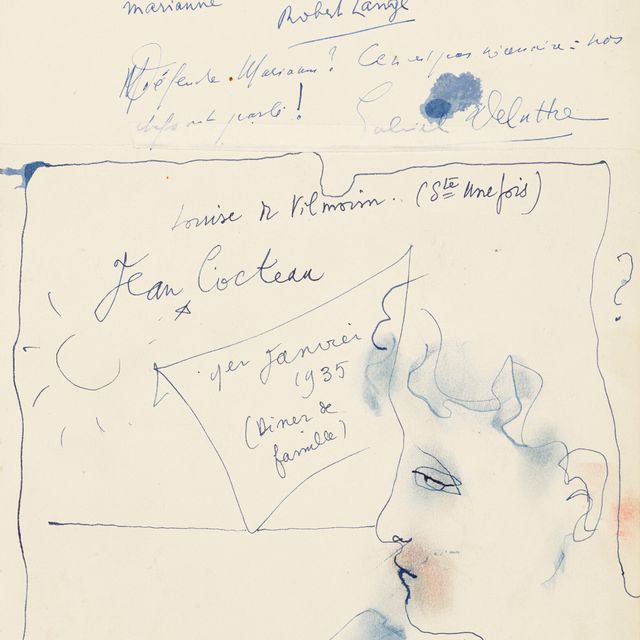 marianne
Robert Lange
Défendre Marianne? Ce n'est pas nécessaire: nos
chefs ont parlé!
Gabriel Delattre
Louise de Vilmorin.. (Ste Unefois)
Jean Cocteau
1er Janvier
1935
(Diner de
famille)
?